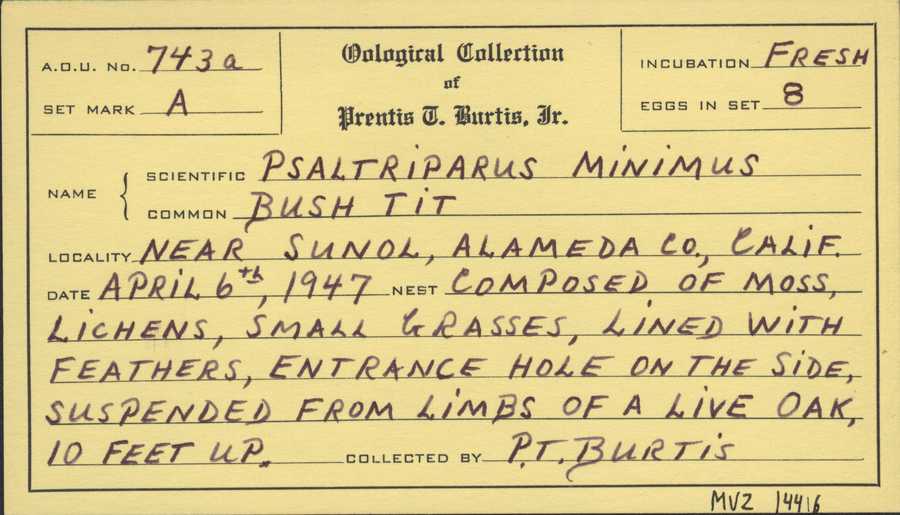 A.O.U. No. 743a
SET MARK A
Oological Collection
of
Prentis T. Burtis, Jr.
INCUBATION FRESH
EGGS IN SET 8
NAME
SCIENTIFIC PSALTRIPARUS MINIMUS
COMMON BUSH TIT
LOCALITY NEAR SUNOL, ALAMEDA CO., CALIF.
DATE APRIL 6th, 1947 NEST COMPOSED OF MOSS,
LICHENS, SMALL GRASSES, LINED WITH
FEATHERS, ENTRANCE HOLE ON THE SIDE,
SUSPENDED FROM LIMBS OF A LIVE OAK,
10 FEET UP. COLLECTED BY P.T. BURTIS
MVZ 14416